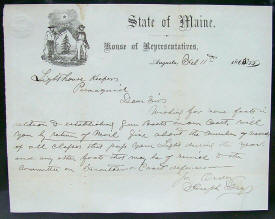 State of Maine.
House of Representatives,
Augusta, Feb 11th 186
Lighthouse Keepers
Pemaquid
Dear Sirs
Wishing for some facts in
relation to establishing Gun Boats on our Coast, will
you by return of Mail give about the number of vessels
of all classes that pass your Light during the year.
and any other facts that may be of service to the
Committee on Coast defences
By Order
Joseph